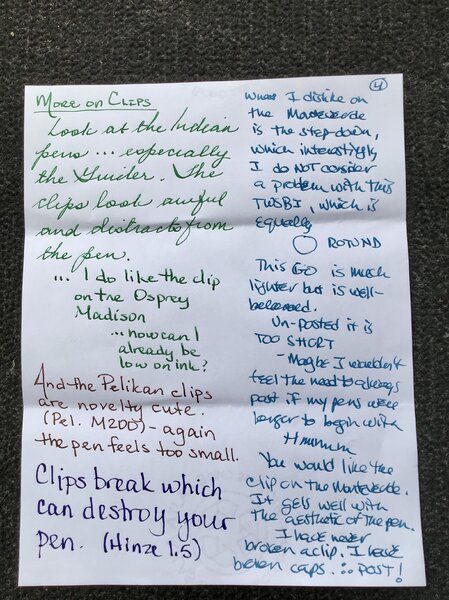 More on Clips
Look at the Indian
pens... especially
the Guider. The
clips look awful
and distracts from
the pen.
... I do like the clip
on the Osprey
Madison
... how can I
already be
low on ink?
And the Pelikan clips
are novelty cute.
(Pel. M200) - again
the pen feels too small.
Clips break which
can destroy your
pen. (Hinze 1.5)
4
What I dislike on
the Monteverde
is the step-down,
which interestingly
I do NOT consider
a problem with this
TWSBI, which is
equally
ROTUND
This GO is much
lighter but is well-
balanced.
Un-posted it is
TOO SHORT
- Maybe I wouldn't
feel the need to always
post if my pens were
longer to begin with
Hmmmm
You would like the
clip on the Monteverde.
It gels well with
the aesthetic of the pen.
I have never
broken a clip. I have
broken caps. ∴ POST!